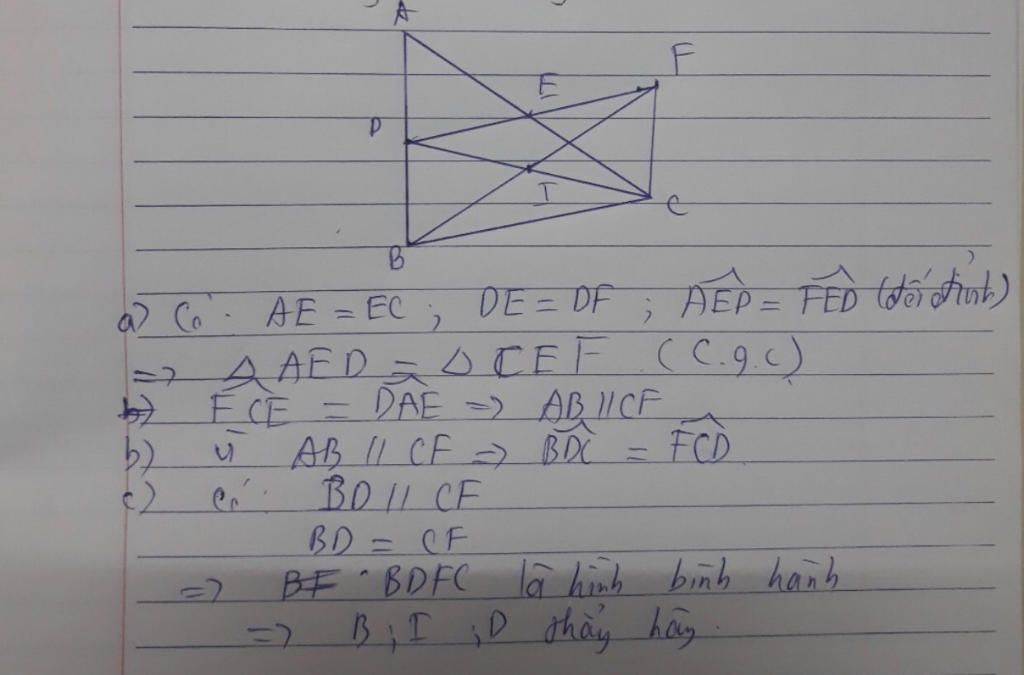 A
F
E
D
I
C
B
a) Có: AE = EC ; DE = DF ; AED = FED (đối đỉnh)
=> Δ AED = Δ CEF (C.g.c)
b) FCE = DAE => AB // CF
b) vì AB // CF => BDC = FCD
c) có: BD // CF
BD = CF
=> BF BDFC là hình bình hành
=> B ; I ; D thẳng hàng.